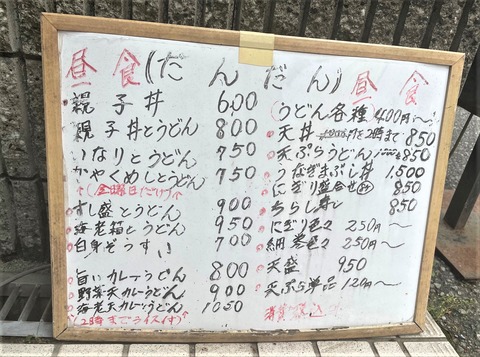 昼食(だんだん)昼食
親子丼 600
親子丼とうどん 800
いなりとうどん 750
かやくめしとうどん 750
↑(金曜日だけ)↑
すし盛とうどん 900
海老箱とうどん 950
白身ぞうすい 700
旨いカレーうどん 800
野菜天カレーうどん 900
海老天カレーうどん 1050
(2時までライス付)
(うどん各種)400円〜
天丼 2時まで 850
天ぷらうどん 850
うなぎまぶし丼 1,500
にぎり盛合せ 850
ちらし寿し 850
にぎり色々 250円〜
細巻色々 250円〜
天盛 950
天ぷら単品 120円〜